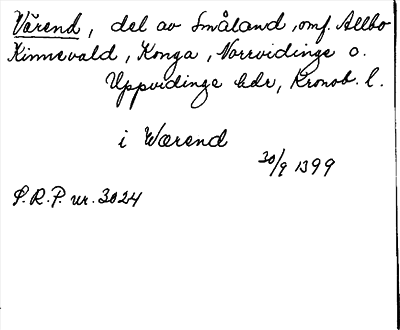 Värend, del av Småland, omf. Allbo
Kinnevald, Konga, Norrvidinge o.
Uppvidinge hdr, Kronob. l.
i Wærend
30/9 1399
S.R.P. nr. 3024